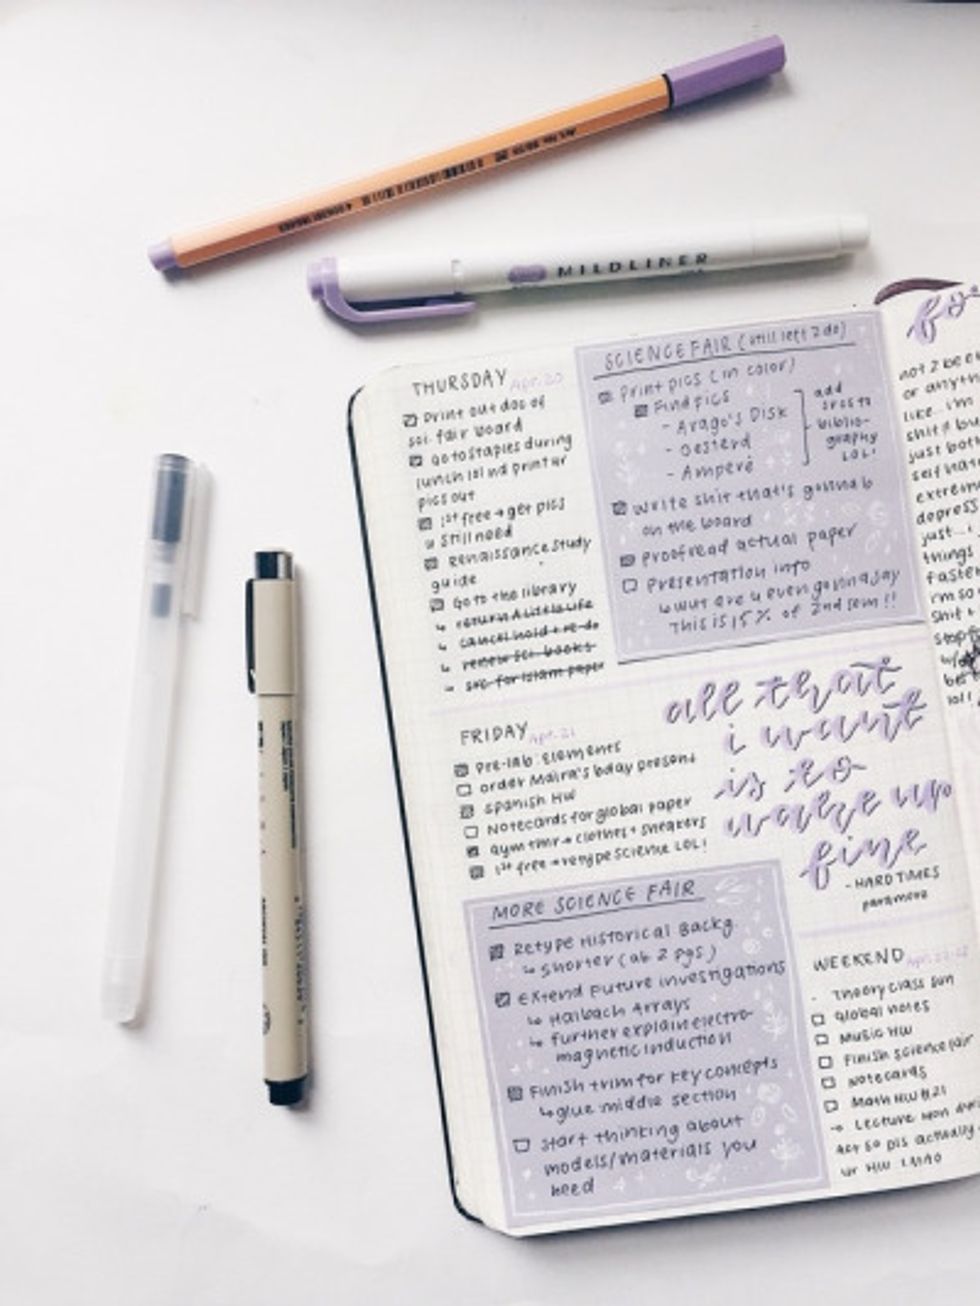 MILDLINER
THURSDAY Apr. 20
Print out doc of
sci. fair board
Go to Staples during
lunch lol nd print ur
pics out
1st free → get pics
u still need
Renaissance study
guide
Go to the library
↳ return A Little Life
↳ cancel hold + re-do
↳ renew sci. books
↳ src. for Islam paper
SCIENCE FAIR (still left 2 do)
Print pics (in color)
Find pics
- Arago's Disk
- Oesterd
- Ampere
add
srcs to
biblio-
graphy
LOL!
Write shit that's gonna b
on the board
Proofread actual paper
Presentation info
↳ wut are u even gonna say
This is 15% of 2nd sem!!
FRIDAY Apr. 21
Pre-lab: Elements
order Maira's bday present
Spanish HW
Notecards for global paper
Gym tmr → clothes + sneakers
1st free → retype science LOL!
all that
i want
is to
wake up
fine
- HARD TIMES
paramore
MORE SCIENCE FAIR
Retype Historical Backg.
↳ shorter (ab 2 pgs.)
Extend Future investigations
↳ Halbach Arrays
↳ further explain electro-
magnetic induction
Finish trim for key concepts
↳ glue middle section
Start thinking about
models/materials you
need
WEEKEND
- Theory class sun
Global notes
Music HW
Finish science fair
Notecards
Math HW #21
→ Lecture
actually
ur HW LMAO
not 2 be
or anyth
like... i'm
shit # bu
just both
self hat
extrem
depress
just...
things
faster
i'm so
shit +
lol!